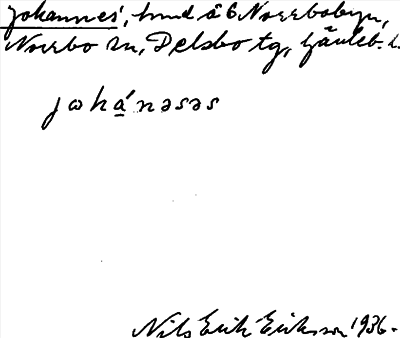 Johannes', hmd å 6 Norrbobyn,
Norrbo sn, Delsbo tg, Gävleb. l.
johánəsəs
Nils Erik Eriksson 1936.